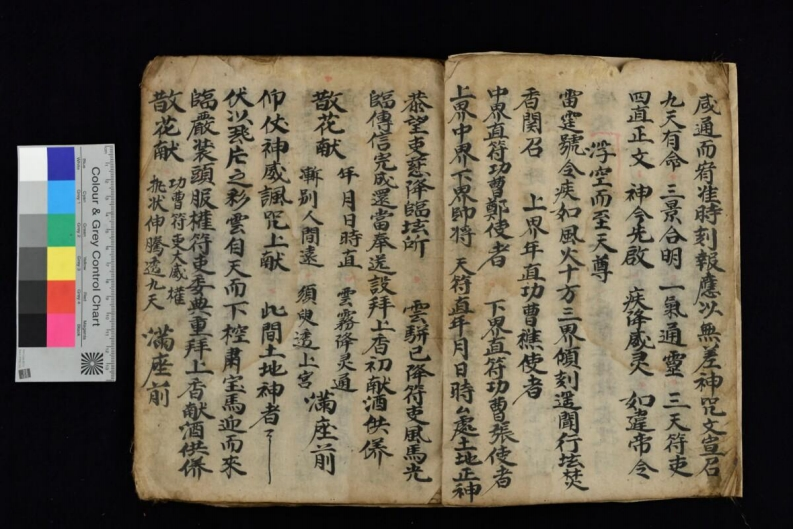 咸通而宥准時刻報應以無差神咒文宣召
九天有命 三景合明 一氣通靈 三天符吏
四直正文 神令先啟 疾降威灵 如違帝令
浮空而至天尊
雷霆號令疾如風火十方三界傾刻遥聞行坛焚
香関召 上界年直功曹樵使者
中界直符功曹鄭使者 下界直符功曹張使者
上界中界下界帥將 天符直年月日時 處土地正神
恭望吏慈降臨坛所 雲駢已降符吏風馬光
臨傳信完咸還當奉送設拜上香初献酒供养
散花献 年月日時直 雲霧降灵通
暫别人間遠 須臾透上宮 滿座前
仰仗神威諷咒上献 此間土地神者
伏以 片之彩雲自天而下 肅宝馬迎而來
臨嚴装頭服權符吏委典重拜上香献酒供养
散花献 功曹符吏大威權
状伸騰透九天 滿座前
Colour & Grey Control Chart